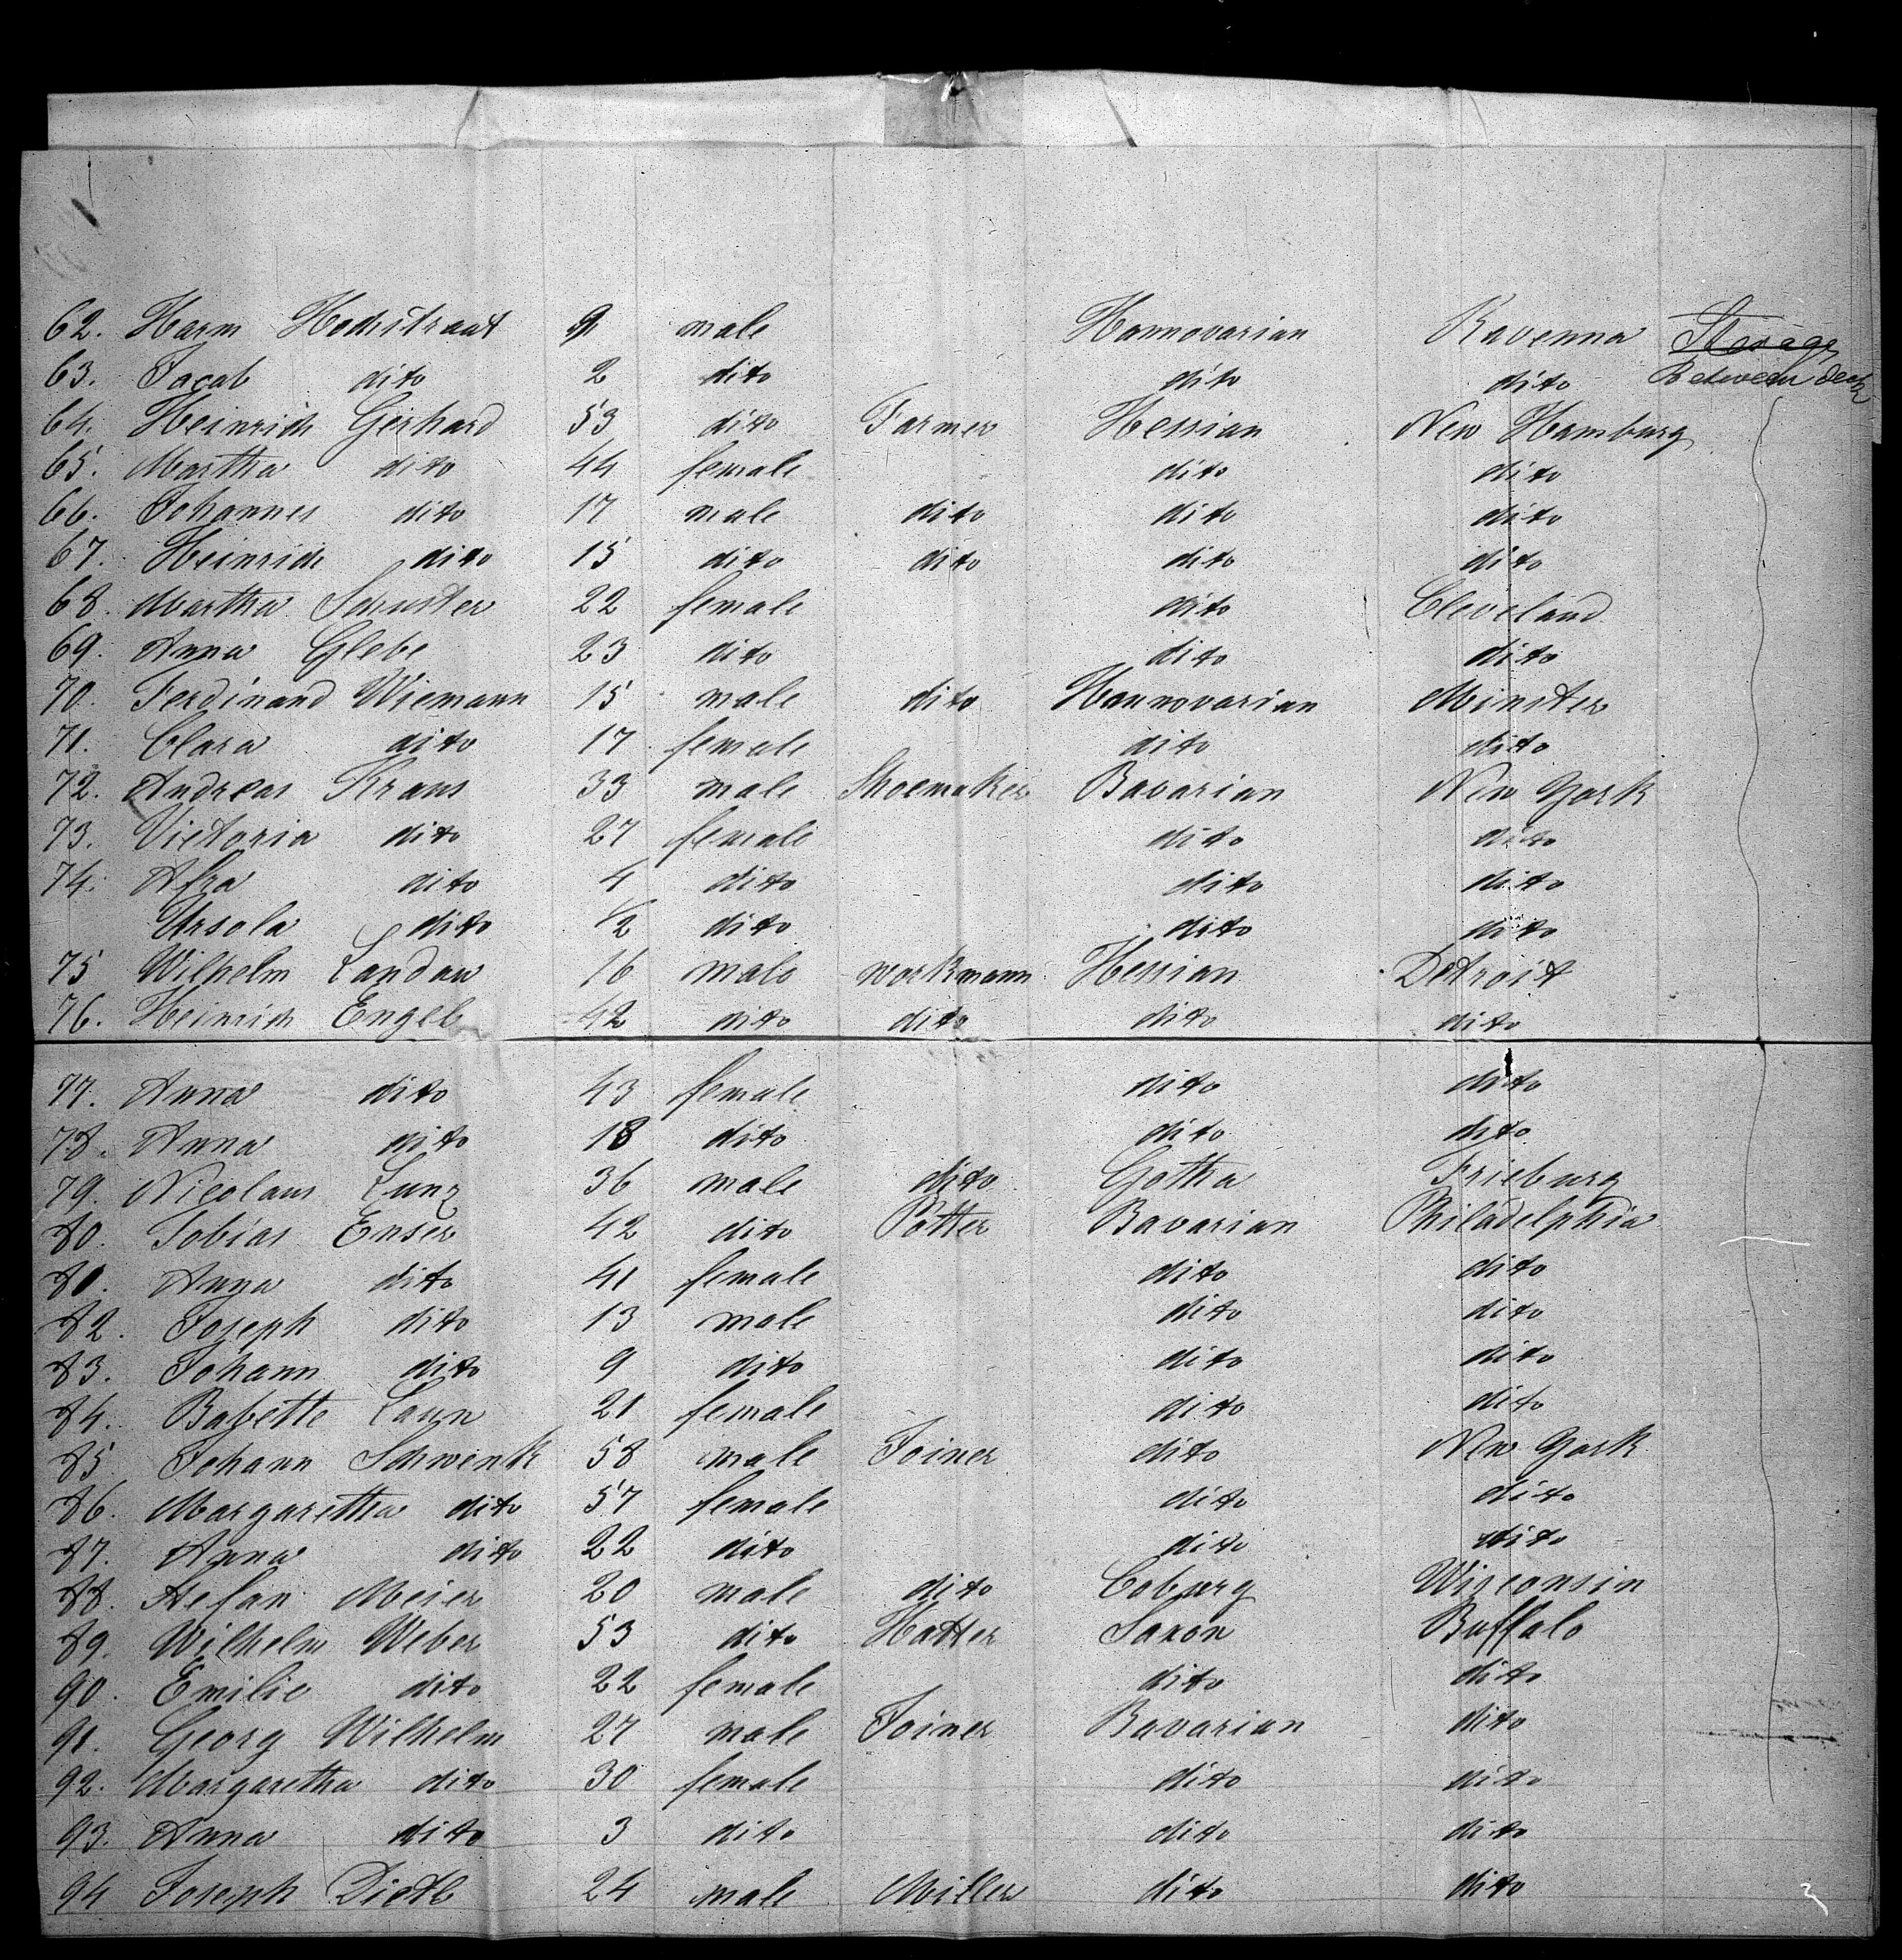 62. Harm Hochstraat 9 male Hannovarian Ravenna Sterage
63. Jacob dito 2 dito dito dito Between deck
64. Heinrich Gerhard 53 dito Farmer Hessian New Hamburg
65. Martha dito 44 female dito dito
66. Johannes dito 17 male dito dito dito
67. Heinrich dito 15 dito dito dito dito
68. Martha Schuster 22 female dito Cleveland
69. Anna Glebe 23 dito dito dito
70. Ferdinand Wiemann 15 male dito Hannovarian Minster
71. Clara dito 17 female dito dito
72. Andreas Kraus 33 male Shoemaker Bavarian New York
73. Victoria dito 27 female dito dito
74. Afra dito 4 dito dito dito
Ursola dito 1/2 dito dito dito
75 Wilhelm Landau 16 male workmann Hessian Detroit
76. Heinrich Engel 42 dito dito dito dito
77. Anna dito 43 female dito dito
78. Anna dito 18 dito dito dito
79. Nicolaus Lunz 36 male dito Gotha Frieburg
80. Tobias Enser 42 dito Potter Bavarian Philadelphia
81. Anna dito 41 female dito dito
82. Joseph dito 13 male dito dito
83. Johann dito 9 dito dito dito
84. Babette Laun 21 female dito dito
85 Johann Schwenk 58 male Joiner dito New York
86. Margaretha dito 57 female dito dito
87. Anna dito 22 dito dito dito
88. Stefan Meier 20 male dito Coburg Wisconsin
89. Wilhelm Weber 53 dito Hatter Saxon Buffalo
90. Emilie dito 22 female dito dito
91. Georg Wilhelm 27 male Joiner Bavarian dito
92. Margaretha dito 30 female dito dito
93. Anna dito 3 dito dito dito
94 Joseph Dietl 24 male Miller dito dito